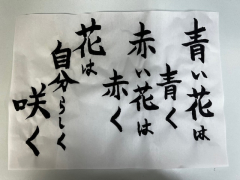 青い花は
青く
赤い花は
赤く
花は
自分らしく
咲く